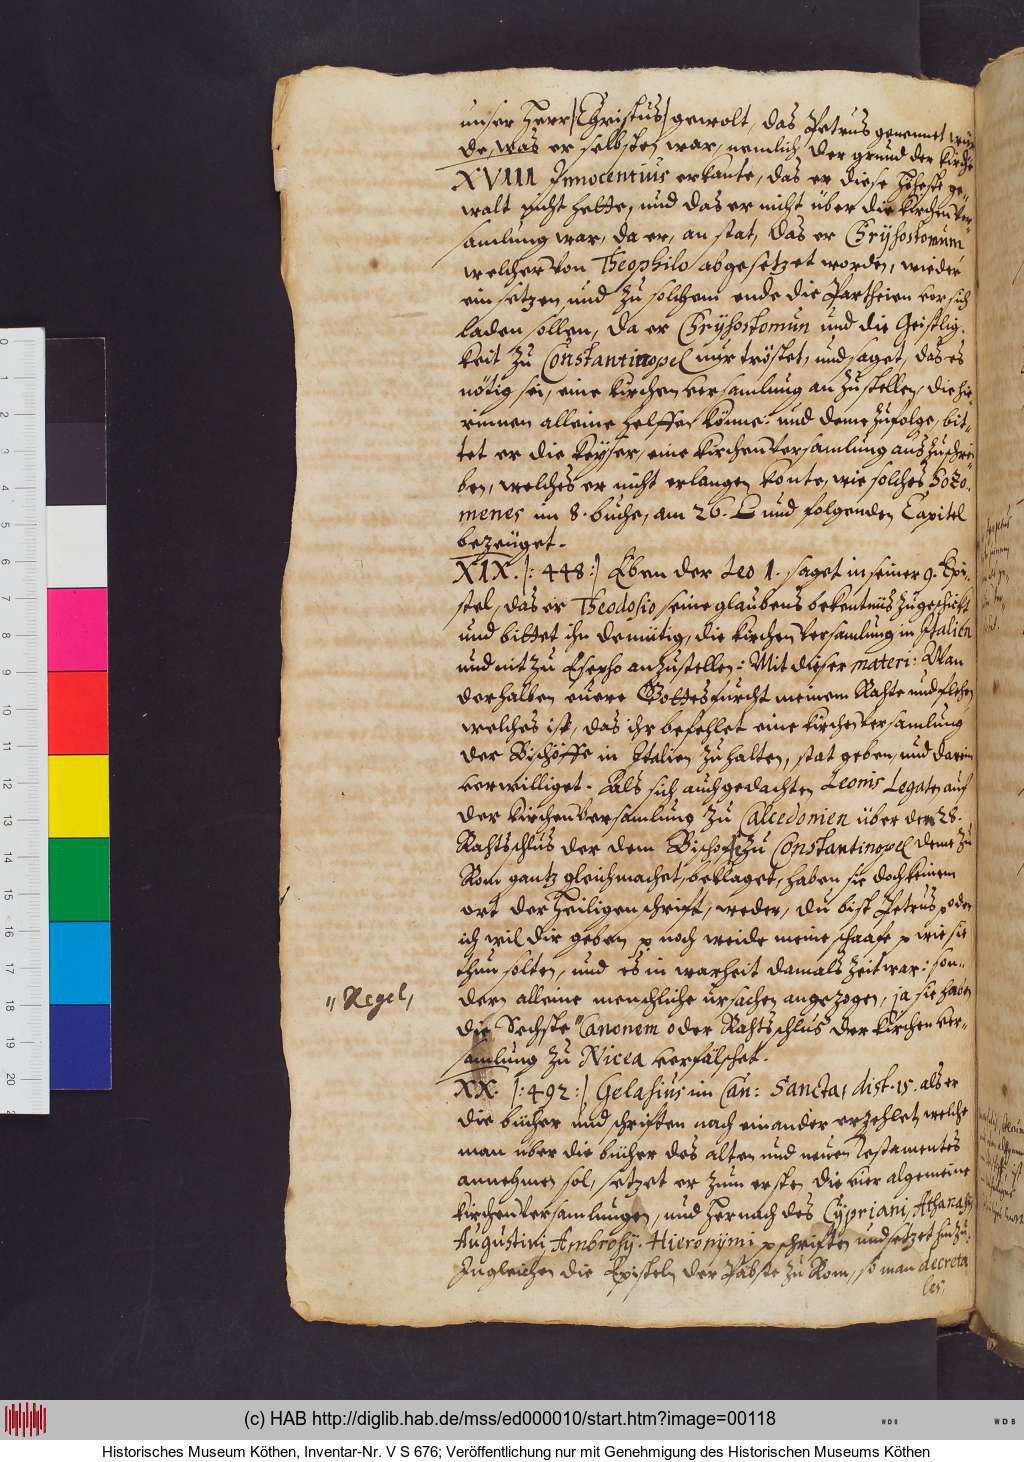 unser Herr (Christus) gewolt, das Petrus genennet wür-
de, was er selbsten war, nemlich der grund der Kirche
XVIII Innocentius erkante, das er diese höheste ge-
walt nicht hette, und das er nicht über die Kirchen ver-
samlung war, da er, an stat, das er Chrysostomum
welcher von Theophilo abgesetzet worden, wieder
ein setzen und zu solchem ende die Partheien vor sich
laden sollen, da er Chrysostomum und die Geistlig-
keit zu Constantinopel nur tröstet, und saget, das es
nötig sei, eine Kirchen versamlung an zu stellen, die hie-
rinnen alleine helffen könne. und deme zufolge, bit-
tet er die Keyser, eine Kirchen versamlung aus zuschrei-
ben, welches er nicht erlangen konte, wie solches Sozo-
menes im 8. buche, am 26. und folgenden Capitel
bezeüget.
XIX. (: 448:) Eben der Leo 1. saget in seiner 9. Epi-
stel, das er Theodosio seine glaubens bekentnüs zugeschickt
und bittet ihn demütig, die kirchen versamlung in Italien
und nit zu Ephesso anzustellen: Mit dieser materi: Wan
derhalben euere Gottesfurcht meinem Rahte und flehen
welches ist, das ihr befehlet eine kirchen versamlung
der Bischöffe in Italien zu halten, stat geben, und darein
verwilliget. Als sich auch gedachten Leonis Legaten auf
der Kirchen versamlung zu Calcedonien über den 28.
Rahtschlus der dem Bischoff zu Constantinopel deme zu
Rom gantz gleich machet, beklaget, haben sie doch keinem
ort der Heiligen schrift, weder, du bist Petrus, oder
ich wil dir geben noch weide meine schaafe wie sie
thun solten, und es in warheit damals Zeit war: son-
dern alleine menschliche ursachen angezogen, ja sie haben
" Regel,
die Sechste " Canonem oder Rahtsschlus der Kirchen ver-
samlung zu Nicea verfälschet.
XX. (: 492 :) Gelasius im Can: Sancta, dist. 15. als er
die bücher und schriften nach einander erzehlet, welche
man über die bücher des alten und neuen Testamentes
annehmen sol, setzet er zum ersten die vier algemeine
Kirchen versamlungen, und hernach des Cypriani, Athanasii
Augustini Ambrosij. Hieronymi schriften und setzet hinzu
Zugleichen die Episteln der Päbste zu Rom, so man decreta
les
0 1 2 3 4 5 6 7 8 9 10 11 12 13 14 15 16 17 18 19 20
(c) HAB http://diglib.hab.de/mss/ed000010/start.htm?image=00118
Historisches Museum Köthen, Inventar-Nr. V S 676; Veröffentlichung nur mit Genehmigung des Historischen Museums Köthen